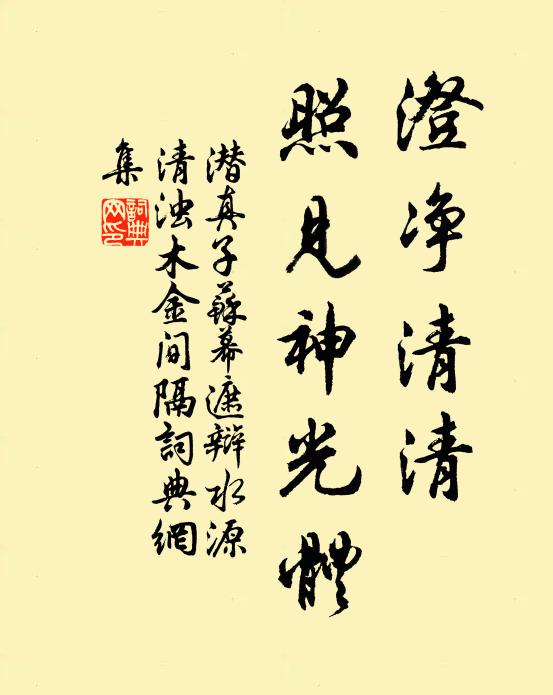 澄净清清
照见神光體
潜真子蘇幕遮辩水源
清浊木金间隔詞典網
集
詞典網印